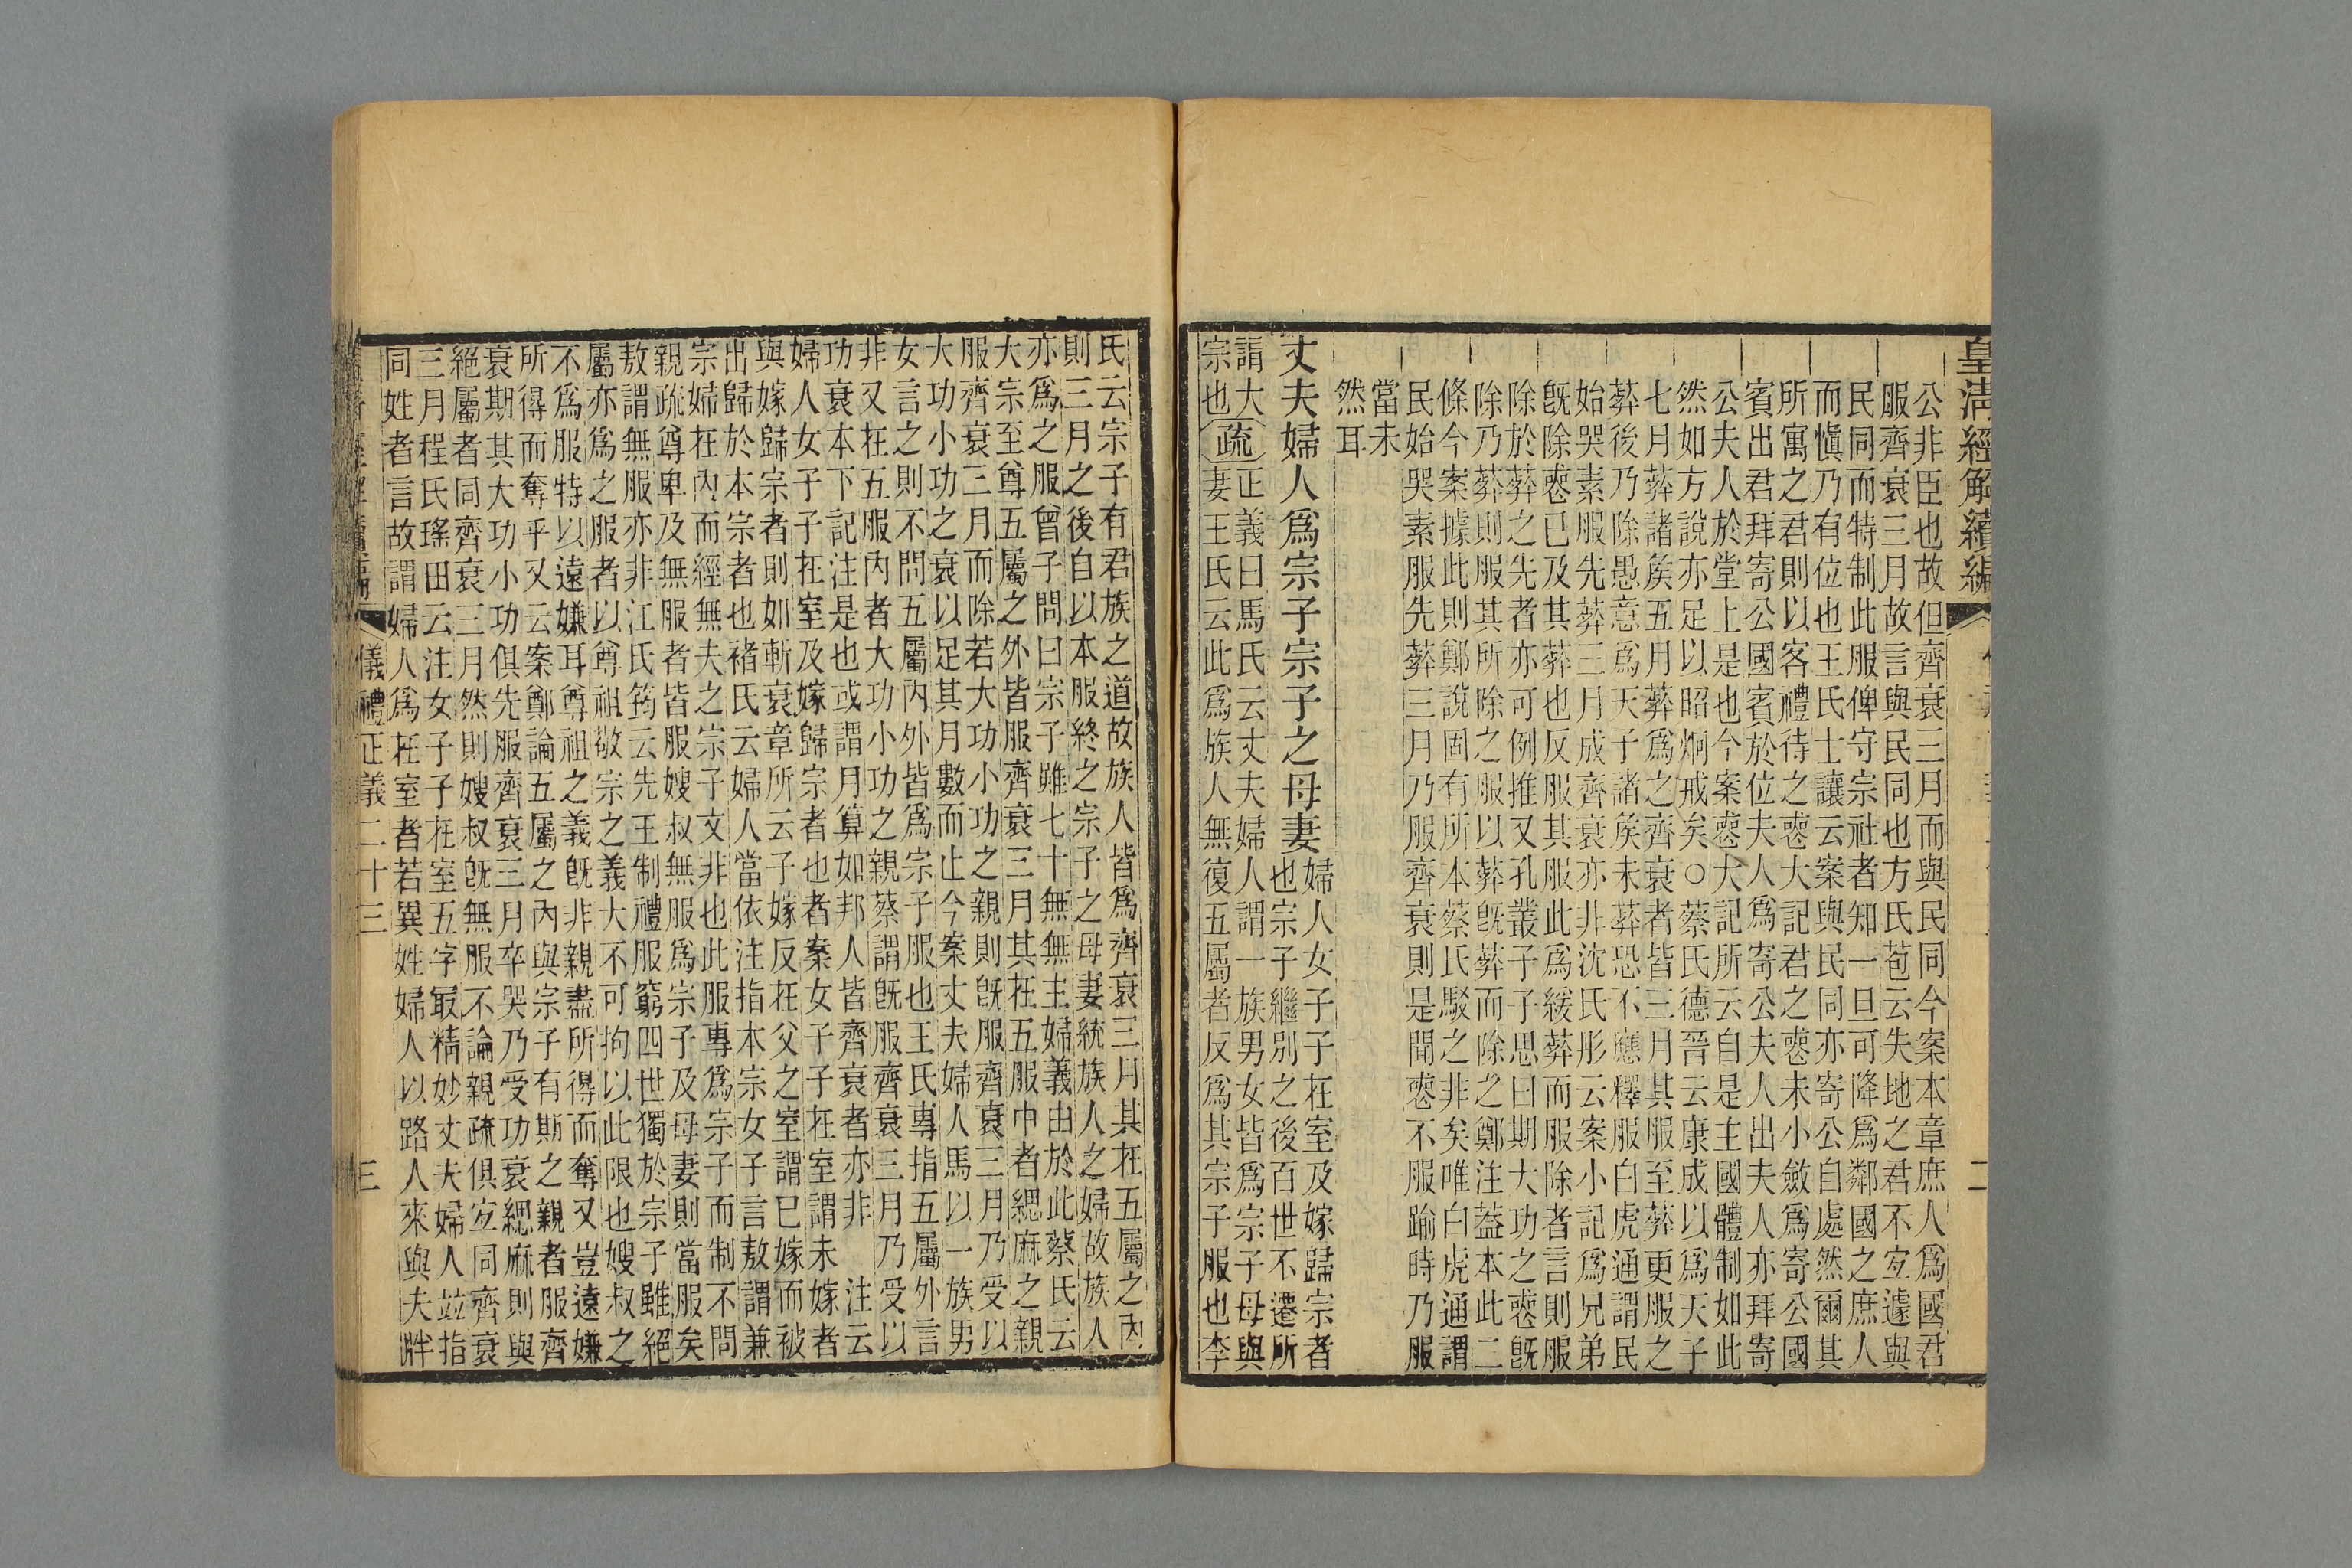 皇淸經解續編
公非臣也故但齊衰三月而與民同今案本章庶人爲國君
服齊衰三月故言與民同也方氏苞云失地之君不宐遽與
民同而特制此服俾守宗社者知一旦可降爲鄰國之庶人
而愼乃有位也王氏士讓云案與民同亦寄公自處然爾其
所寓之君則以客禮待之喪大記君之喪未小斂爲寄公國
賓出君拜寄公國賓於位夫人爲寄公夫人出夫人亦拜寄
公夫人於堂上是也今案喪大記所云自是主國體制如此
然如方說亦足以昭炯戒矣○蔡氏德晉云康成以爲天子
七月葬諸矦五月葬爲之齊衰者皆三月其服至葬更服之
葬後乃除愚意爲天子諸矦未葬恐不應釋服白虎通謂民
始哭素服先葬三月成齊衰亦非沈氏彤云案小記爲兄弟
旣除喪已及其葬也反服其服此爲緩葬而服除者言則服
除於葬之先者亦可例推又孔叢子子思曰期大功之喪旣
除乃葬則服其所除之服以葬旣葬而除之鄭注葢本此二
條今案據此則鄭說固有所本蔡氏駁之非矣唯白虎通謂
民始哭素服先葬三月乃服齊衰則是聞喪不服踰時乃服
當未
然耳
丈夫婦人爲宗子宗子之母妻
婦人女子子在室及嫁歸宗者
也宗子繼別之後百世不遷所
謂大
宗也
疏
正義曰馬氏云丈夫婦人謂一族男女皆爲宗子母與
妻王氏云此爲族人無復五屬者反爲其宗子服也李
氏云宗子有君族之道故族人皆爲齊衰三月其在五屬之內
則三月之後自以本服終之宗子之母妻統族人之婦故族人
亦爲之服曾子問曰宗子雖七十無無主婦義由於此蔡氏云
大宗至尊五屬之外皆服齊衰三月其在五服中者緦麻之親
服齊衰三月而除若大功小功之親則旣服齊衰三月乃受以
大功小功之衰以足其月數而止今案丈夫婦人馬以一族男
女言之則不問五屬內外皆爲宗子服也王氏專指五屬外言
非又在五服內者大功小功之親蔡謂旣服齊衰三月乃受以
功衰本下記注是也或謂月算如邦人皆齊衰者亦非　注云
婦人女子子在室及嫁歸宗者也者案女子子在室謂未嫁者
與嫁歸宗者則如斬衰章所云子嫁反在父之室謂已嫁而被
出歸於本宗者也褚氏云婦人當依注指本宗女子子言敖謂兼
宗婦在內而經無夫之宗子文非也此服專爲宗子而制不問
親疏尊卑及無服者皆服嫂叔無服爲宗子及母妻則當服矣
敖謂無服亦非江氏筠云先王制禮服窮四世獨於宗子雖絕
屬亦爲之服者以尊祖敬宗之義大不可拘以此限也嫂叔之
不爲服特以遠嫌耳尊祖之義旣非親盡所得而奪又豈遠嫌
所得而奪乎又云案鄭論五屬之內與宗子有期之親者服齊
衰期其大功小功俱先服齊衰三月卒哭乃受功衰緦麻則與
絕屬者同齊衰三月然則嫂叔旣無服不論親疏俱宐同齊衰
三月程氏瑤田云注女子子在室五字最精妙丈夫婦人竝指
同姓者言故謂婦人爲在室者若異姓婦人以路人來與夫牉
儀禮正義二十三
三